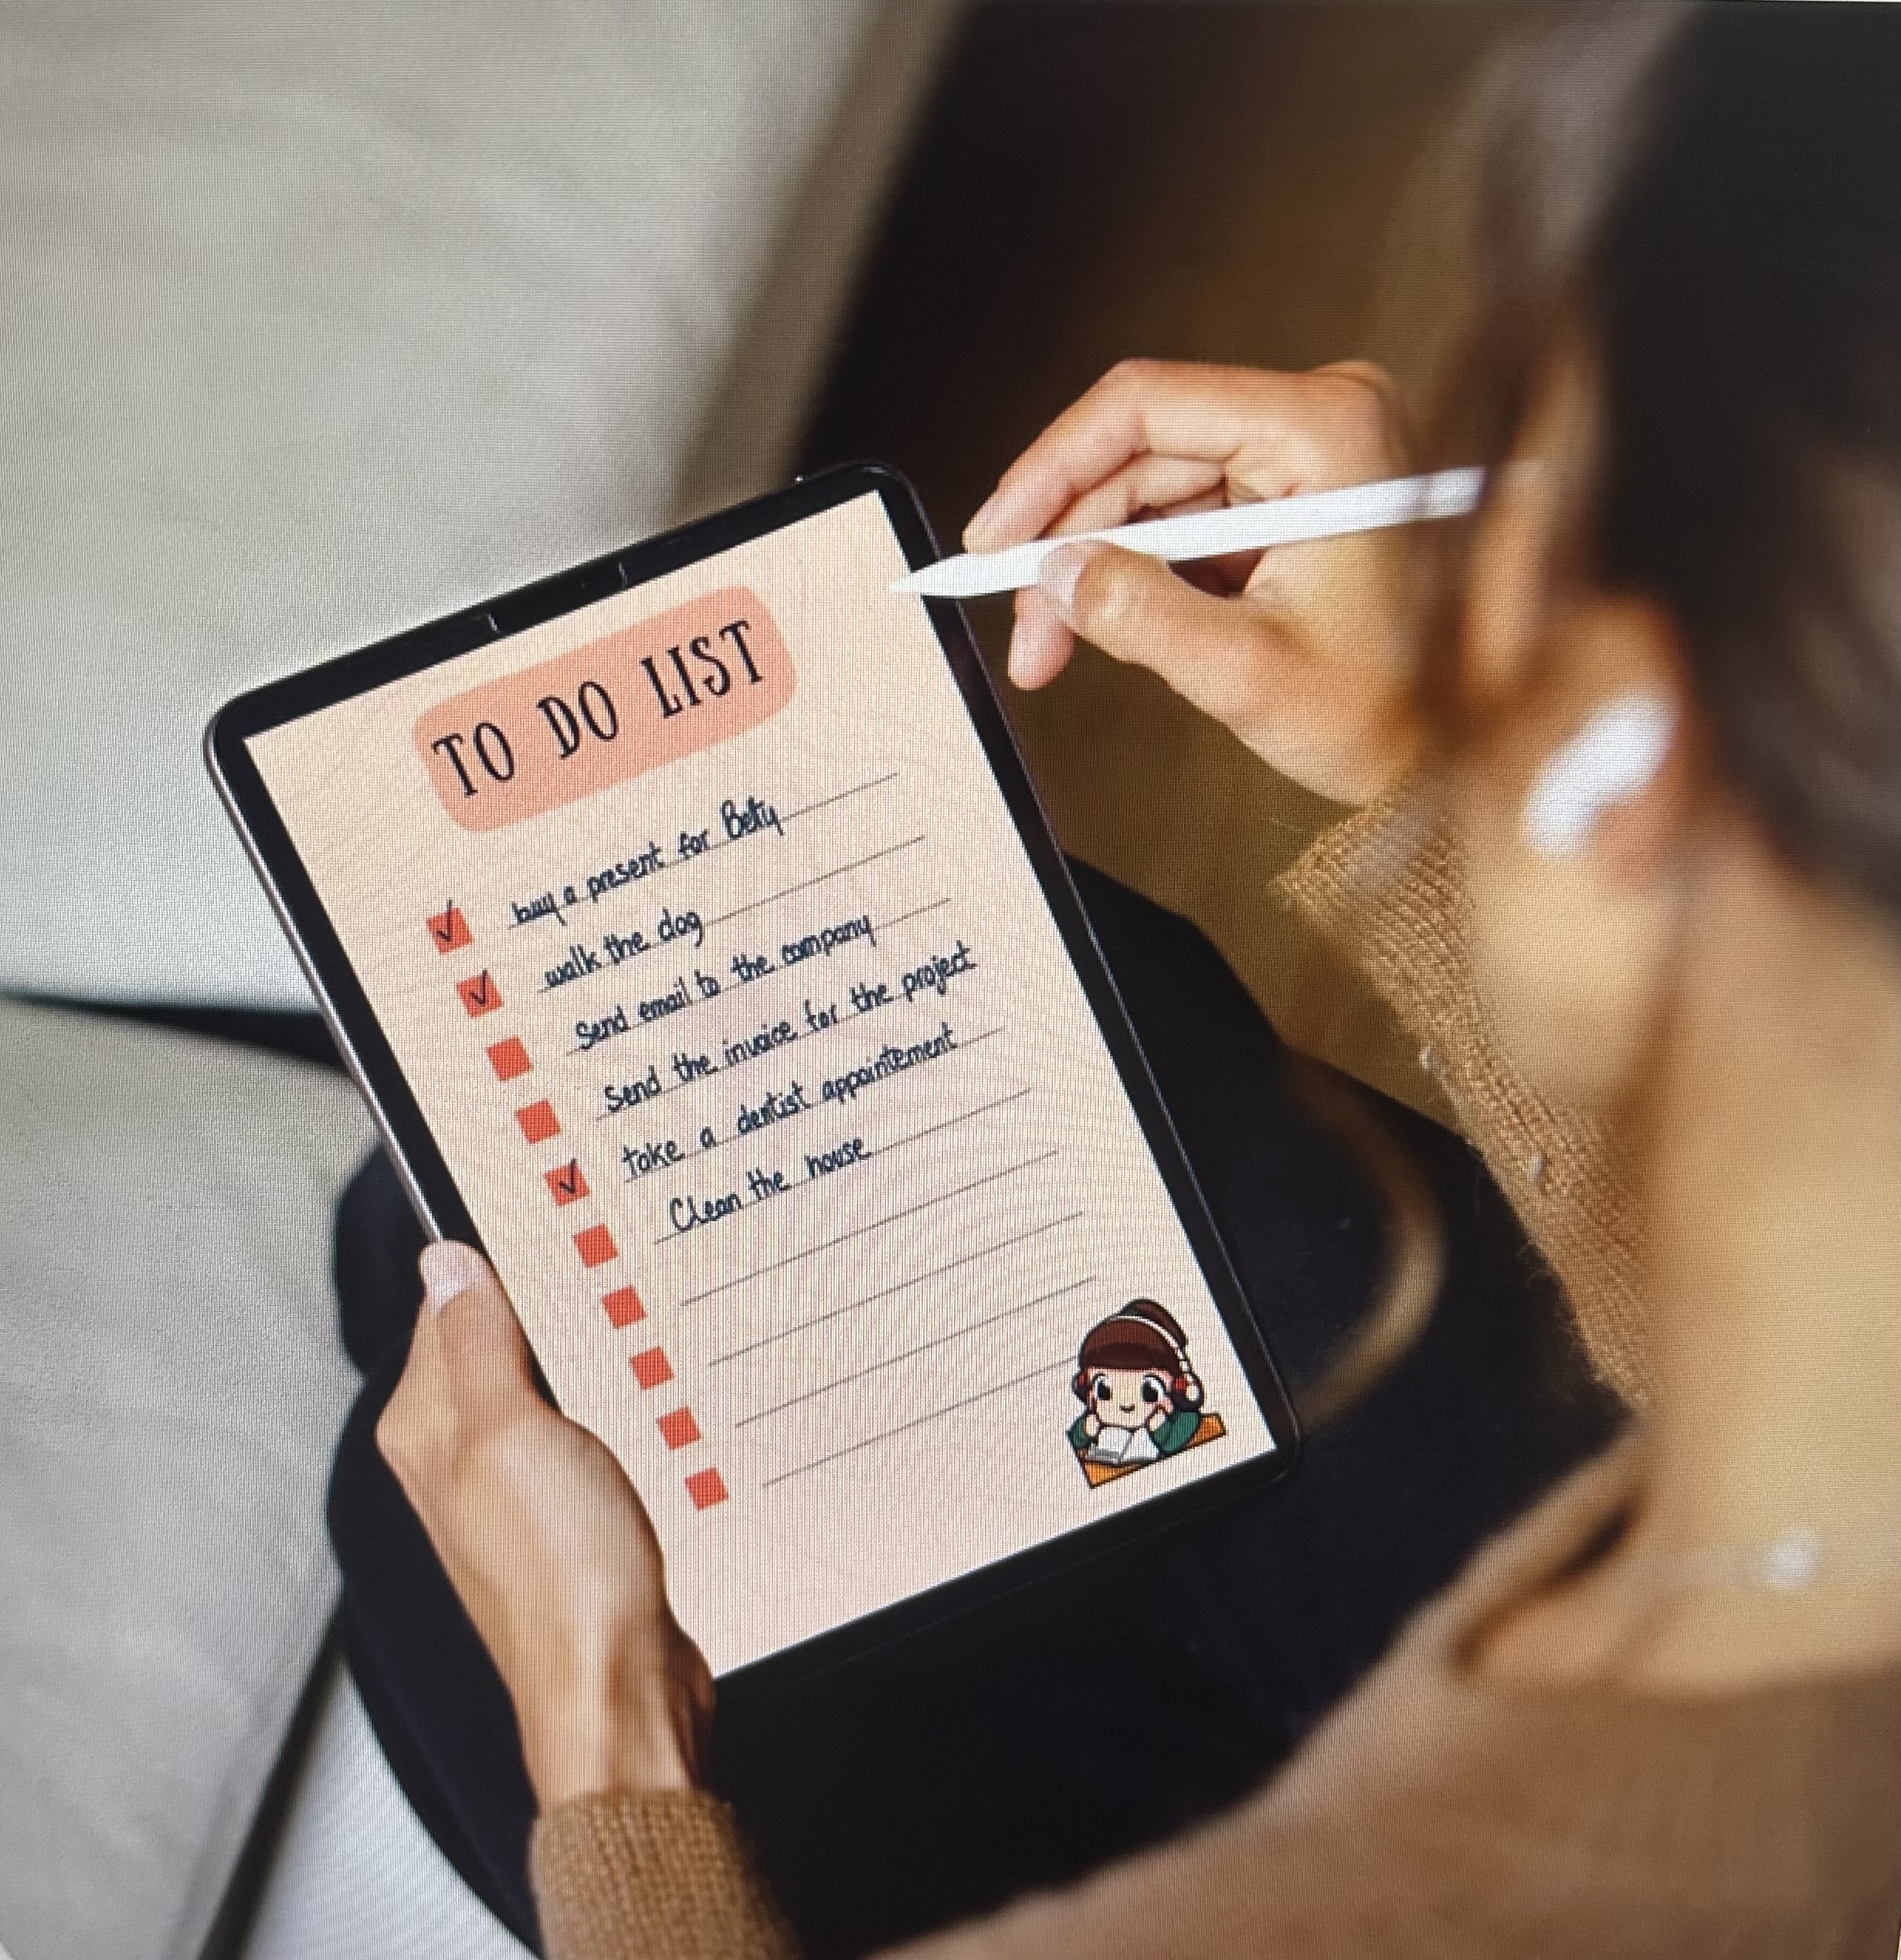 TO DO LIST
buy a present for Betty
walk the dog
Send email to the company
Send the invoice for the project
take a dentist appointement
Clean the house